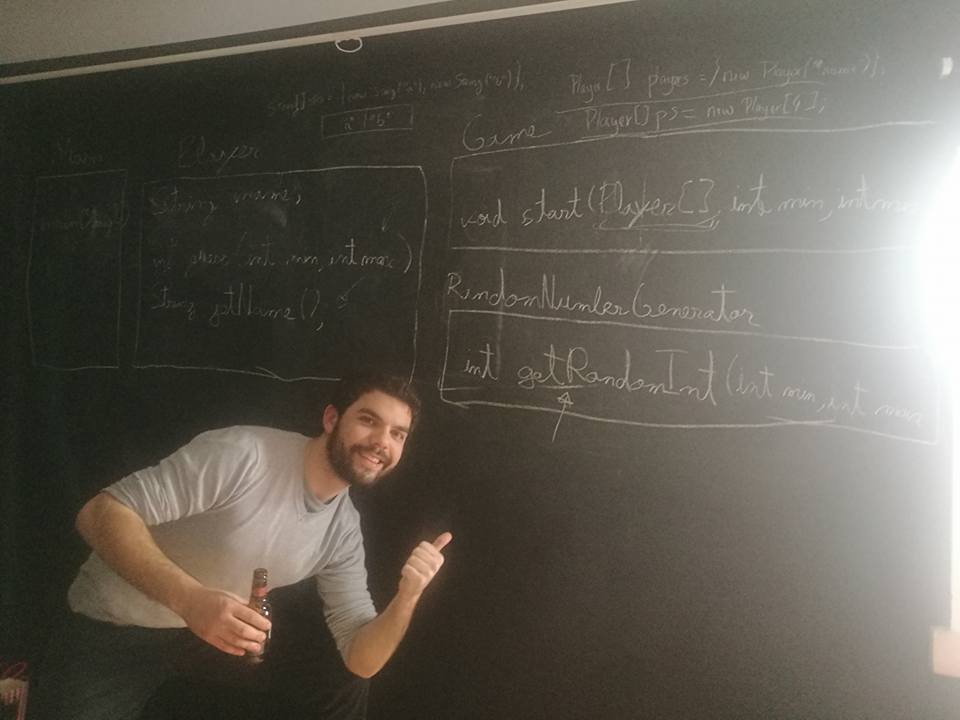 String[] ss = {new String("a"), new String("b")};
"a" "b"
Player[] players = {new Player("name")};
Player[] ps = new Player[4];
Main
Player
String name;
int guess (int min, int max)
String getName();
Game
void start(Player[], int min, int max
RandomNumberGenerator
int getRandomInt(int min, int max